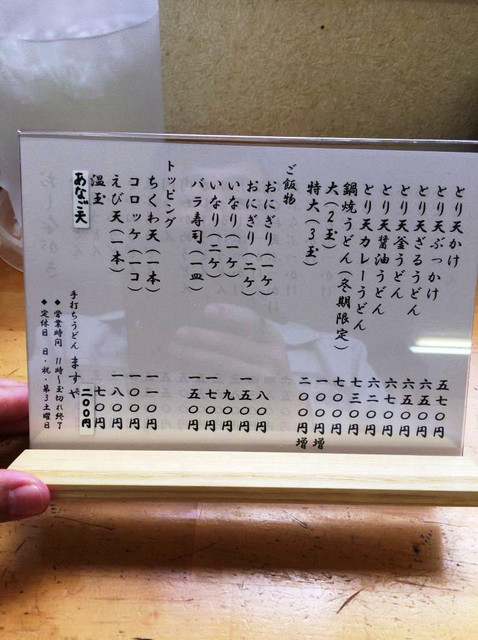 とり天かけ 五七〇円
とり天ぶっかけ 六五〇円
とり天ざるうどん 六五〇円
とり天釜うどん 六七〇円
とり天醤油うどん 六二〇円
とり天カレーうどん 七三〇円
鍋焼うどん(冬期限定) 七〇〇円
大(2玉) 一〇〇円増
特大(3玉) 二〇〇円増
ご飯物
おにぎり(一ケ) 八〇円
おにぎり(二ケ) 一五〇円
いなり(一ケ) 九〇円
いなり(二ケ) 一七〇円
バラ寿司(一皿) 一五〇円
トッピング
ちくわ天(一本) 一一〇円
コロッケ(一コ) 一〇〇円
えび天(一本) 一八〇円
温玉 七〇円
あなご天 二〇〇円
手打ちうどん ますや
◆営業時間 11時~玉切れ終了
◆定休日 日・祝・第3土曜日